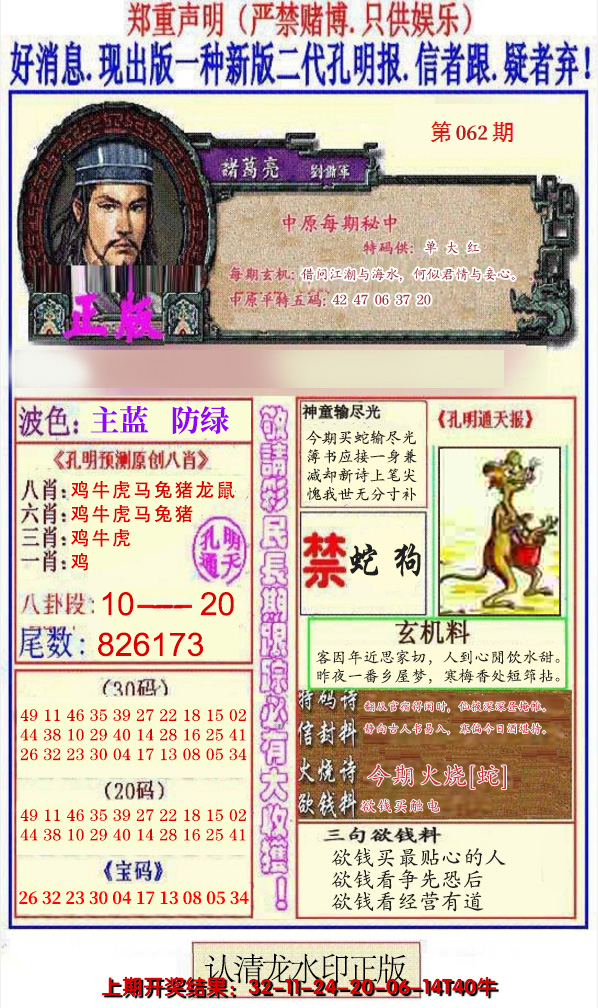 郑重声明（严禁赌博.只供娱乐）
好消息.现出版一种新版二代孔明报.信者跟.疑者弃!
第062期
諸葛亮 劉備軍
中原每期秘中
特码供: 单大红
每期玄机: 借问江潮与海水，何似君情与妾心。
中原平特五码: 42 47 06 37 20
正版
波色: 主蓝 防绿
《孔明预测原创八肖》
八肖: 鸡牛虎马兔猪龙鼠
六肖: 鸡牛虎马兔猪
三肖: 鸡牛虎
一肖: 鸡
孔明
通天
八卦段: 10——20
尾数: 826173
(30码)
49 11 46 35 39 27 22 18 15 02
44 38 10 29 40 14 28 16 25 41
26 32 23 30 04 17 13 08 05 34
(20码)
49 11 46 35 39 27 22 18 15 02
44 38 10 29 40 14 28 16 25 41
《宝码》
26 32 23 30 04 17 13 08 05 34
敬請彩民長期跟踪必有大收獲!
神童输尽光
今期买蛇输尽光
薄书应接一身兼
减却新诗上笔尖
愧我世无分寸补
《孔明通天报》
禁 蛇 狗
玄机料
客因年近思家切，人到心閒饮水甜。
昨夜一番乡屋梦，寒梅香处短筇拈。
特码诗
信封料
火烧诗 今期火烧[蛇]
欲钱料 欲钱买触电
三句欲钱料
欲钱买最贴心的人
欲钱看争先恐后
欲钱看经营有道
认清龙水印正版
上期开奖结果：32-11-24-20-06-14T40牛